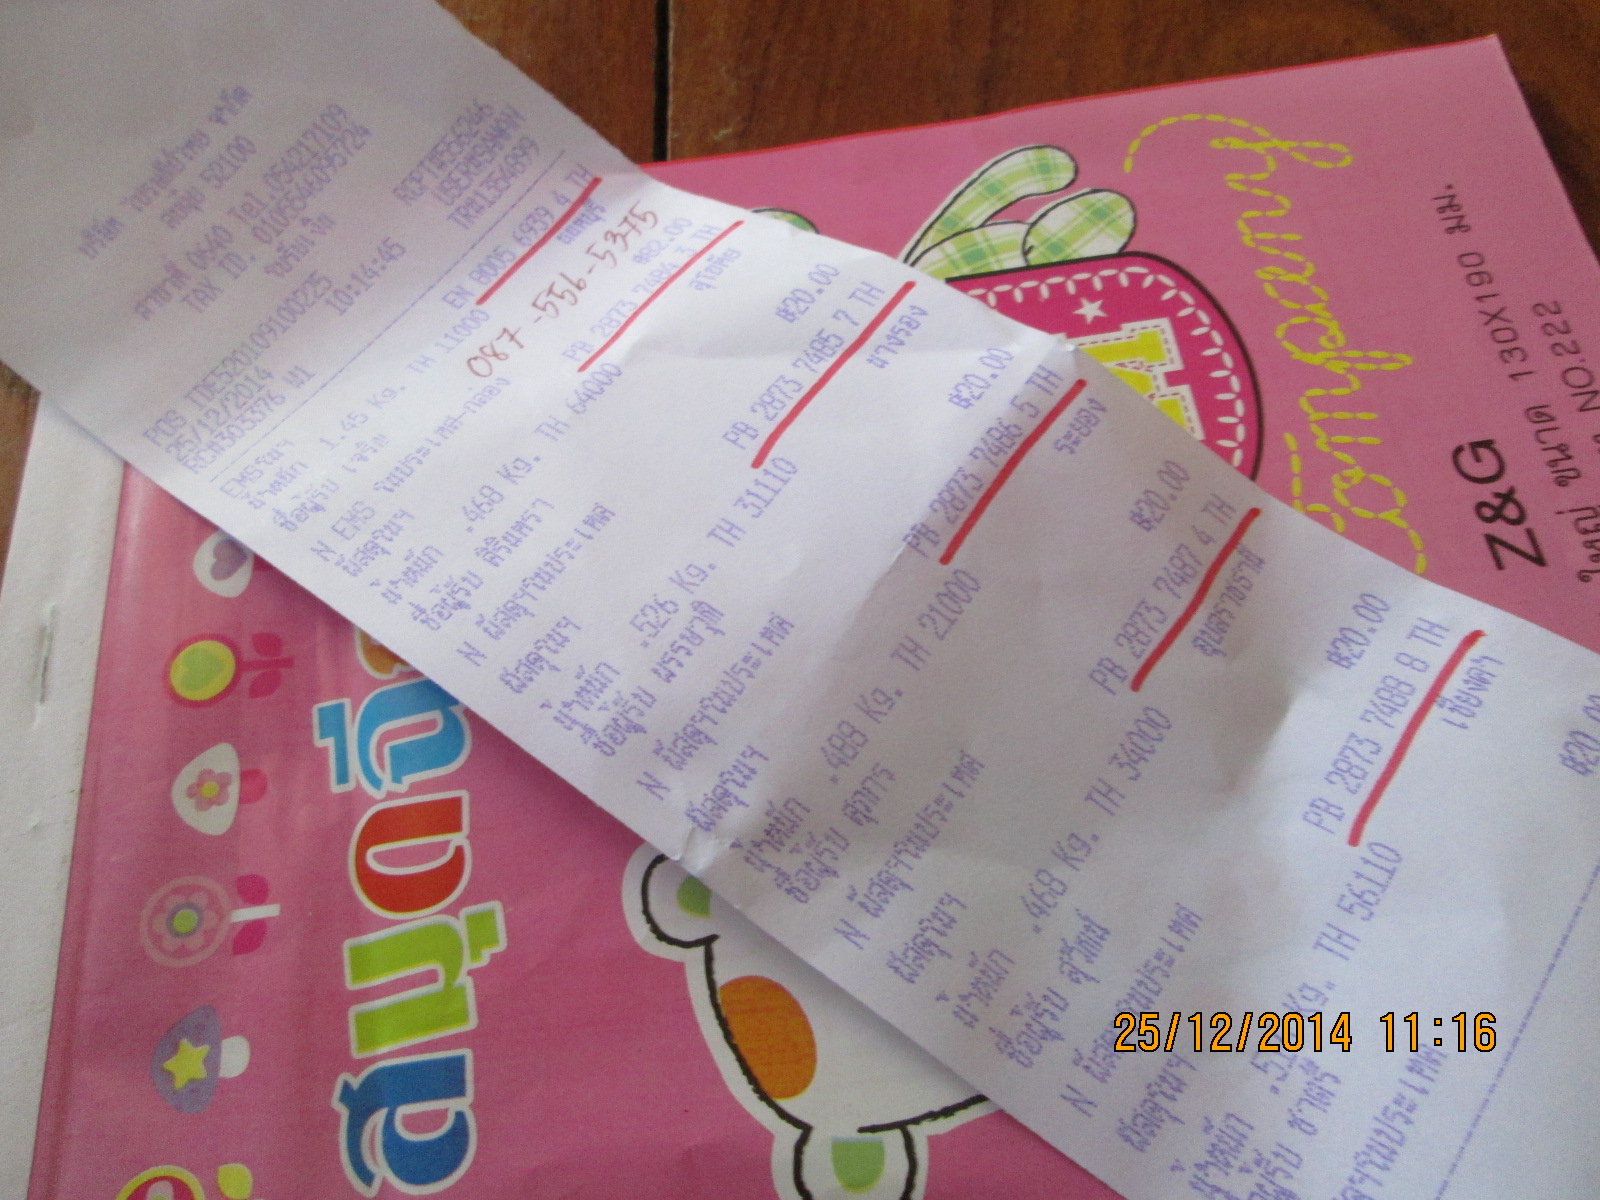 บริษัท ไปรษณีย์ไทย จำกัด
ลำพูน 52100
สาขาที่ 0640 Tel.054217109
TAX ID. 0105546095724
ใบรับเงิน
POS TDE520109100225 RCPT#556246
25/12/2014 10:14:45
RCW303376 W1 TR#1354899
EMSในฯ EN 8005 6939 4 TH
น้ำหนัก 1.45 Kg. TH 11000
ชื่อผู้รับ เจริญ
087-556-5375
N EMS ในประเทศ-กล่อง ฿82.00
พัสดุในฯ PB 2873 7484 3 TH
น้ำหนัก .468 Kg. TH 64000 สุโขทัย
ชื่อผู้รับ
N พัสดุฯในประเทศ ฿20.00
พัสดุในฯ PB 2873 7485 7 TH
น้ำหนัก .526 Kg. TH 31110 นางรอง
ชื่อผู้รับ พรรษวุฒิ
N พัสดุฯในประเทศ ฿20.00
พัสดุในฯ PB 2873 7486 5 TH
น้ำหนัก .488 Kg. TH 21000 ระยอง
ชื่อผู้รับ ศุภกร
N พัสดุฯในประเทศ ฿20.00
พัสดุในฯ PB 2873 7487 4 TH
น้ำหนัก .468 Kg. TH 34000 อุบลราชธานี
ชื่อผู้รับ สุวิทย์
N พัสดุฯในประเทศ ฿20.00
พัสดุในฯ PB 2873 7488 8 TH
น้ำหนัก Kg. TH 56110 เชียงคำ
ชื่อผู้รับ ชาตรี
ในประเทศ ฿20.00
สมุดฉี
Z&G
ใหญ่ ขนาด 130X190 มม.
NO.222
25/12/2014 11:16